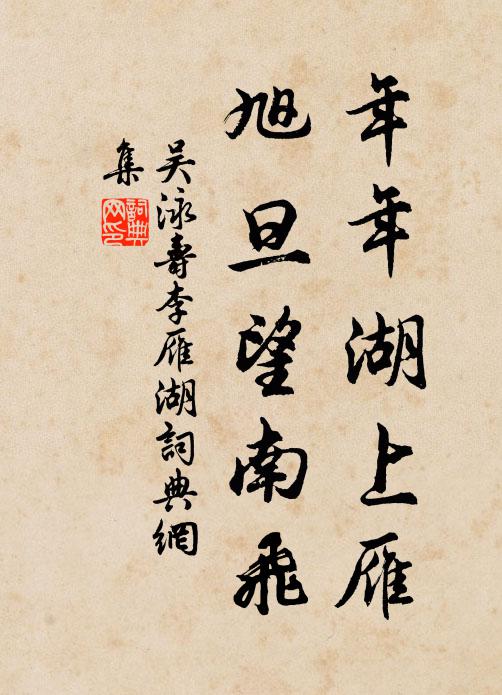 年年湖上雁
旭旦望南飛
吴泳壽李雁湖詞典網
集
詞典網印